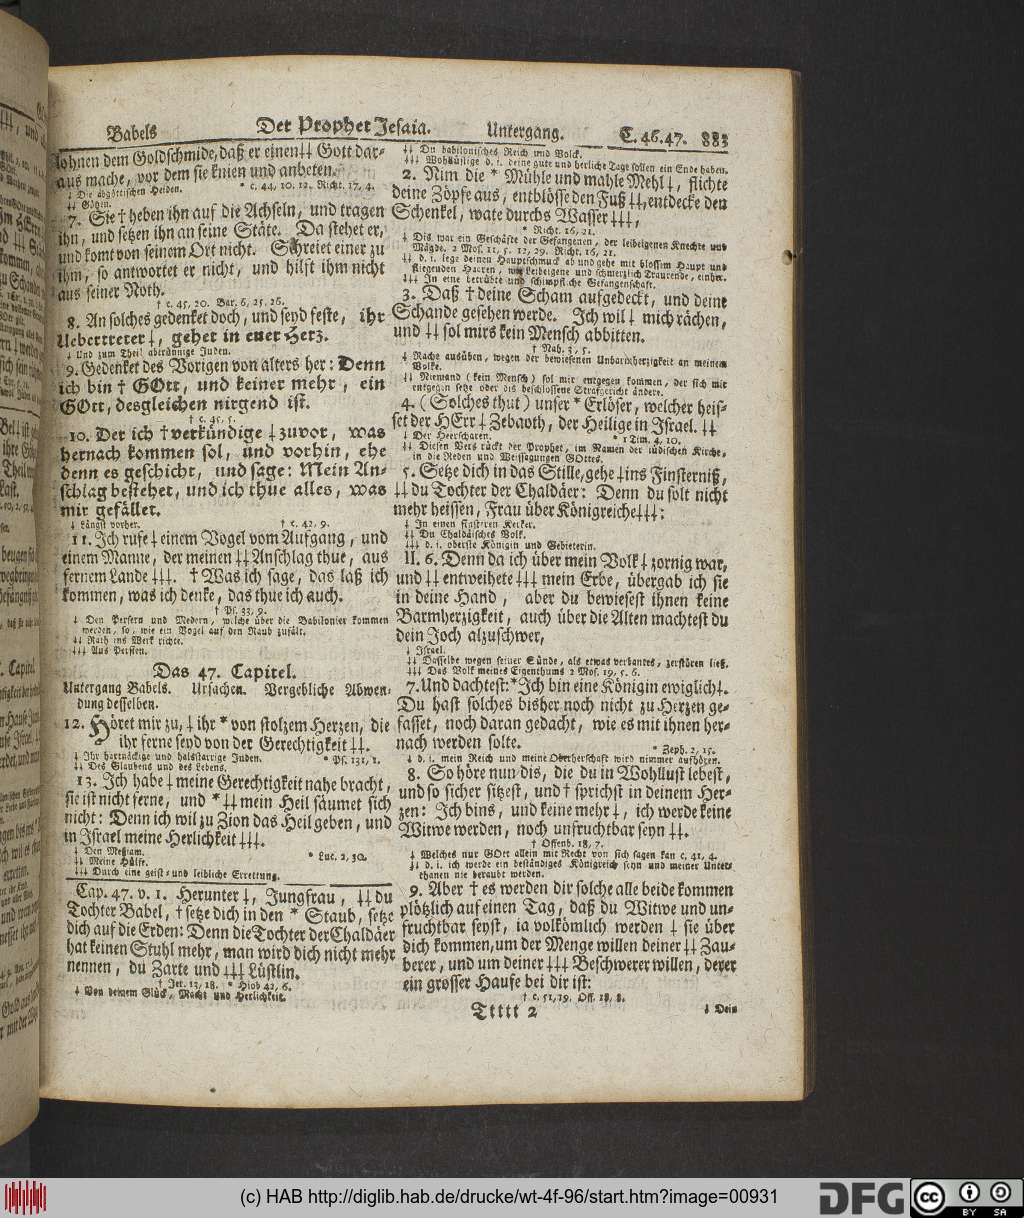 Babels Der Prophet Jesaia. Untergang. C. 46.47. 883
lohnen dem Goldschmide, daß er einen ⸸⸸ Gott dar-
aus mache, vor dem sie knien und anbeten.
⸸ Die abgöttischen Heiden. * c. 44, 10. 12. Richt. 17, 4.
⸸⸸ Götzen.
7. Sie † heben ihn auf die Achseln, und tragen
ihn, und setzen ihn an seine Stäte. Da stehet er,
und komt von seinem Ort nicht. Schreiet einer zu
ihm, so antwortet er nicht, und hilft ihm nicht
aus seiner Noth.
† c. 45, 20. Bar. 6, 25. 26.
8. An solches gedenket doch, und seyd feste, ihr
Uebertreter ⸸, gehet in euer Herz.
⸸ Und zum Theil abtrünnige Juden.
9. Gedenket des Vorigen von alters her: Denn
ich bin † GOtt, und keiner mehr, ein
GOtt, desgleichen nirgend ist.
† c. 45, 5.
10. Der ich † verkündige ⸸ zuvor, was
hernach kommen sol, und vorhin, ehe
denn es geschicht, und sage: Mein An-
schlag bestehet, und ich thue alles, was
mir gefället.
⸸ Längst vorher. † c. 42, 9.
11. Ich rufe ⸸ einem Vogel vom Aufgang, und
einem Manne, der meinen ⸸⸸ Anschlag thue, aus
fernem Lande ⸸⸸⸸. † Was ich sage, das laß ich
kommen, was ich denke, das thue ich auch.
† Ps. 33, 9.
⸸ Den Persern und Medern, welche über die Babilonier kommen
werden, so, wie ein Vogel auf den Raub zufält.
⸸⸸ Rath ins Werk richte.
⸸⸸⸸ Aus Persien.
Das 47. Capitel.
Untergang Babels. Ursachen. Vergebliche Abwen-
dung desselben.
12. Höret mir zu, ⸸ ihr * von stolzem Herzen, die
ihr ferne seyd von der Gerechtigkeit ⸸⸸.
⸸ Ihr hartnäckige und halsstarrige Juden. * Ps. 131, 1.
⸸⸸ Des Glaubens und des Lebens.
13. Ich habe ⸸ meine Gerechtigkeit nahe bracht,
sie ist nicht ferne, und * ⸸⸸ mein Heil säumet sich
nicht: Denn ich wil zu Zion das Heil geben, und
in Israel meine Herlichkeit ⸸⸸⸸.
⸸ Den Meßiam. * Luc. 2, 30.
⸸⸸ Meine Hülfe.
⸸⸸⸸ Durch eine geist- und leibliche Errettung.
Cap. 47. v. 1. Herunter ⸸, Jungfrau, ⸸⸸ du
Tochter Babel, † setze dich in den * Staub, setze
dich auf die Erden: Denn die Tochter der Chaldäer
hat keinen Stuhl mehr, man wird dich nicht mehr
nennen, du Zarte und ⸸⸸⸸ Lüstlin.
† Jer. 13, 18. * Hiob 42, 6.
⸸ Von deinem Glück, Macht und Herlichkeit.
⸸⸸ Du babilonisches Reich und Volck.
⸸⸸⸸ Wohllüstige d. i. deine gute und herliche Tage sollen ein Ende haben.
2. Nim die * Mühle und mahle Mehl ⸸, flichte
deine Zöpfe aus, entblösse den Fuß ⸸⸸, entdecke den
Schenkel, wate durchs Wasser ⸸⸸⸸,
* Richt. 16, 21.
⸸ Dis war ein Geschäfte der Gefangenen, der leibeigenen Knechte und
Mägde. 2 Mos. 11, 5. 12, 29. Richt. 16, 21.
⸸⸸ d. i. lege deinen Hauptschmuck ab und gehe mit blossem Haupt und
fliegenden Haaren, wie Leibeigene und schmerzlich Traurende, einher.
⸸⸸⸸ In eine betrübte und schimpfliche Gefangenschaft.
3. Daß † deine Scham aufgedeckt, und deine
Schande gesehen werde. Ich wil ⸸ mich rächen,
und ⸸⸸ sol mirs kein Mensch abbitten.
† Nah. 3, 5.
⸸ Rache ausüben, wegen der bewiesenen Unbarmherzigkeit an meinem
Volke.
⸸⸸ Niemand (kein Mensch) sol mir entgegen kommen, der sich mir
entgegen setze oder dis beschlossene Strafgericht ändere.
4. (Solches thut) unser * Erlöser, welcher heis-
set der HErr ⸸ Zebaoth, der Heilige in Israel. ⸸⸸
⸸ Der Heerscharen. * 1 Tim. 4, 10.
⸸⸸ Diesen Vers rückt der Prophet, im Namen der jüdischen Kirche,
in die Reden und Weissagungen GOttes.
5. Setze dich in das Stille, gehe ⸸ ins Finsterniß,
⸸⸸ du Tochter der Chaldäer: Denn du solt nicht
mehr heissen, Frau über Königreiche ⸸⸸⸸:
⸸ In einen finsteren Kerker.
⸸⸸ Du Chaldäisches Volk.
⸸⸸⸸ d. i. oberste Königin und Gebieterin.
II. 6. Denn da ich über mein Volk ⸸ zornig war,
und ⸸⸸ entweihete ⸸⸸⸸ mein Erbe, übergab ich sie
in deine Hand, aber du bewiesest ihnen keine
Barmherzigkeit, auch über die Alten machtest du
dein Joch alzuschwer,
⸸ Israel.
⸸⸸ Dasselbe wegen seiner Sünde, als etwas verbantes, zerstören ließ.
⸸⸸⸸ Das Volk meines Eigenthums 2 Mos. 19, 5. 6.
7. Und dachtest: * Ich bin eine Königin ewiglich ⸸.
Du hast solches bisher noch nicht zu Herzen ge-
fasset, noch daran gedacht, wie es mit ihnen her-
nach werden solte.
* Zeph. 2, 15.
⸸ d. i. mein Reich und meine Oberherschaft wird nimmer aufhören.
8. So höre nun dis, die du in Wohllust lebest,
und so sicher sitzest, und † sprichst in deinem Her-
zen: Ich bins, und keine mehr ⸸, ich werde keine
Witwe werden, noch unfruchtbar seyn ⸸⸸.
† Offenb. 18, 7.
⸸ Welches nur GOtt allein mit Recht von sich sagen kan c. 41, 4.
⸸⸸ d. i. ich werde ein beständiges Königreich seyn und meiner Unter-
thanen nie beraubt werden.
9. Aber † es werden dir solche alle beide kommen
plötzlich auf einen Tag, daß du Witwe und un-
fruchtbar seyst, ja volkömlich werden ⸸ sie über
dich kommen, um der Menge willen deiner ⸸⸸ Zau-
berer, und um deiner ⸸⸸⸸ Beschwerer willen, derer
ein grosser Haufe bei dir ist:
† c. 51, 19. Off. 18, 8.
Ttttt 2 ⸸ Dein
(c) HAB http://diglib.hab.de/drucke/wt-4f-96/start.htm?image=00931
DFG cc BY SA